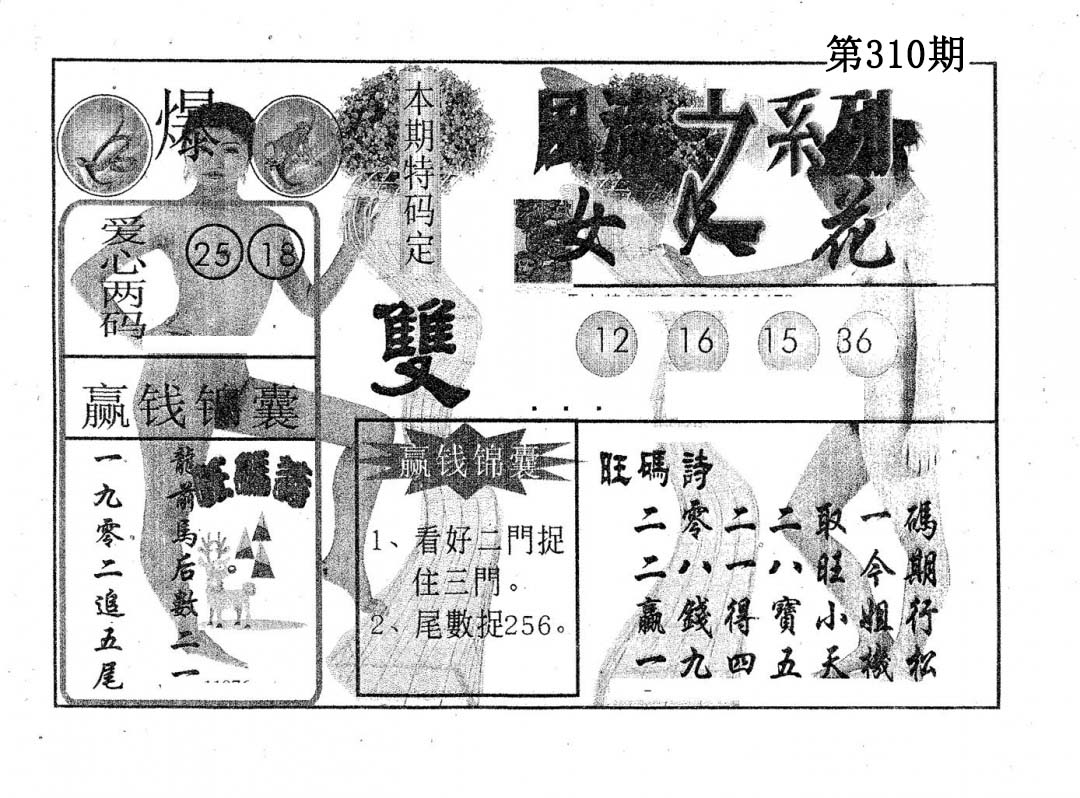 第310期
爆
本期特码定
雙
系列
女人花
爱心两码
25 18
12 16 15 36
赢钱锦囊
龍前馬后數二一
一九零二追五尾
赢钱锦囊
1、看好二門捉
住三門。
2、尾數捉256。
旺碼詩
二零二二取一碼
二八一八旺今期
贏錢得寶小姐行
一九四五天機松